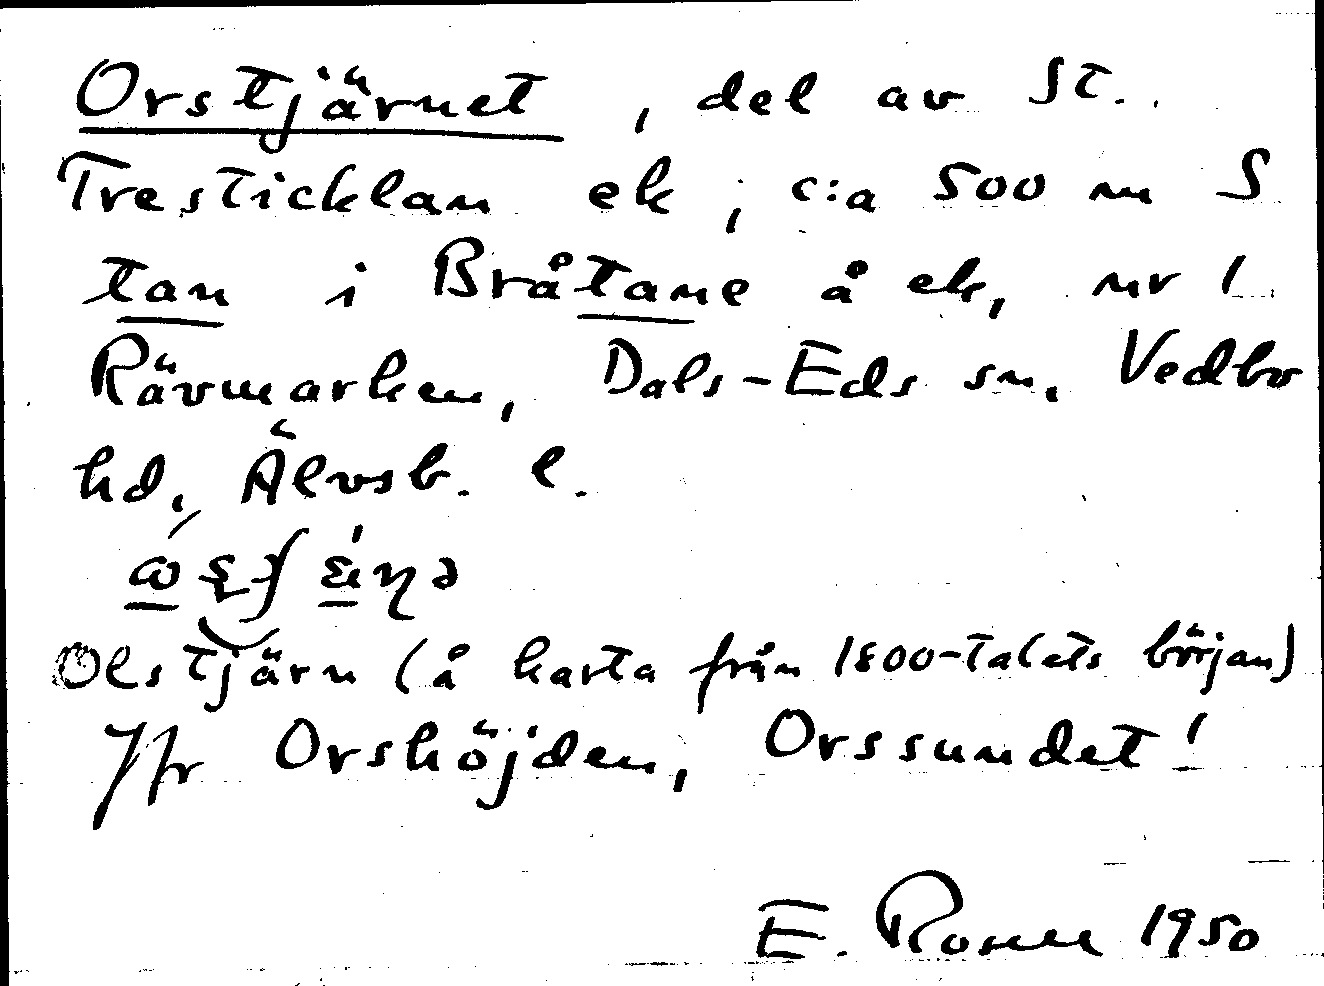 Orstjärnet, del av St.
Tresticklan ek, c:a 500 m S
tan i Bråtane å ek, nr 1
Rävmarken, Dals-Eds sn. Vedbo
hd, Älvsb. l.
Olstjärn (å karta från 1800-talets början)
Jfr Orshöjden, Orssundet!
E. Rosell 1950